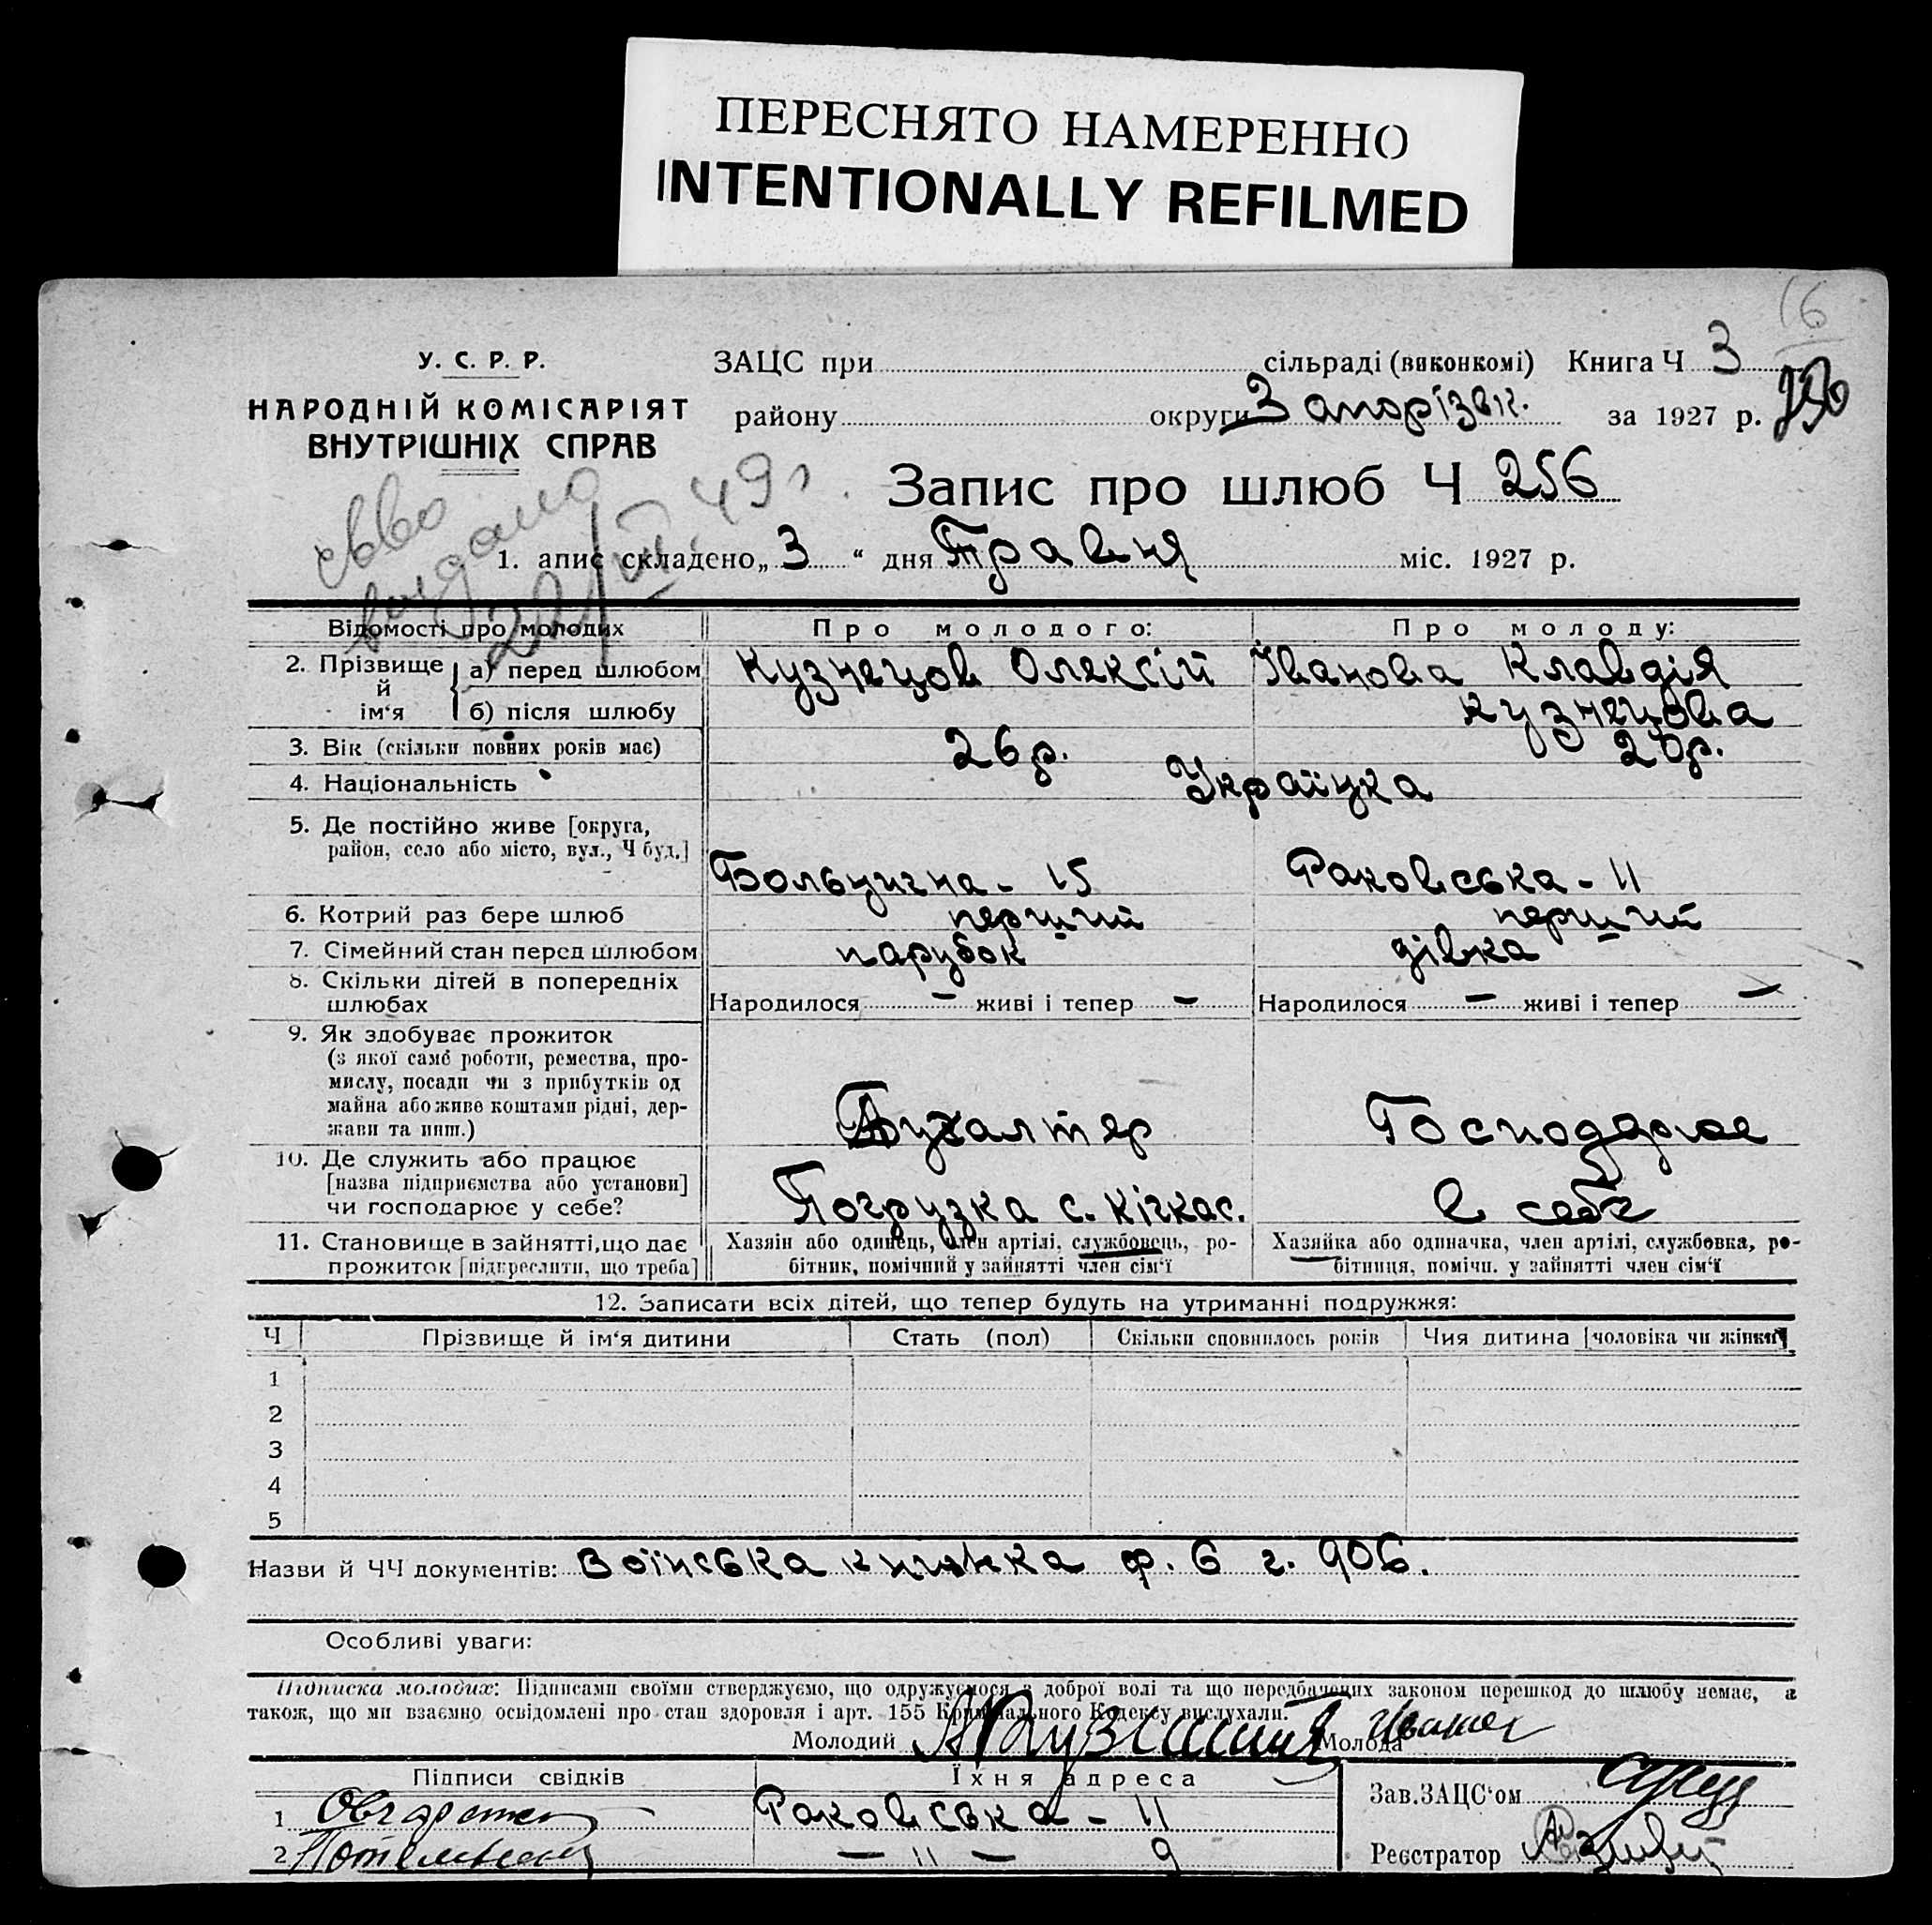 ПЕРЕСНЯТО НАМЕРЕННО
INTENTIONALLY REFILMED
16
У. С. Р. Р.
НАРОДНІЙ КОМІСАРІЯТ
ВНУТРІШНІХ СПРАВ
ЗАЦС при сільраді (виконкомі) Книга Ч 3
району округи Запорізьк. за 1927 р.
250
49 г
Запис про шлюб Ч 256
1. апис складено „ 3 “ дня Травня міс. 1927 р.
Відомості про молодих Про молодого: Про молоду:
2. Прізвище й ім‘я а) перед шлюбом Кузнецов Олексій Іванова Клавдія
б) після шлюбу Кузнецова
3. Вік (скільки повних років має) 26 р. 20 р.
4. Національність Україцка
5. Де постійно живе [округа,
район, село або місто, вул., Ч буд.]
Больнична - 15 Раковська - 11
6. Котрий раз бере шлюб перший перший
7. Сімейний стан перед шлюбом парубок дівка
8. Скільки дітей в попередніх
шлюбах Народилося — живі і тепер — Народилося — живі і тепер —
9. Як здобуває прожиток
(з якої саме роботи, ремества, про-
мислу, посади чи з прибутків од
майна або живе коштами рідні, дер-
жави та инш.) Бухалтер Господарює
10. Де служить або працює
[назва підприємства або установи]
чи господарює у себе? Погрузка с. Кічкас. в себе
11. Становище в зайнятті, що дає
прожиток [підкреслити, що треба]
Хазяїн або одинець, член артілі, службовець, ро-
бітник, помічний у зайнятті член сім‘ї
Хазяйка або одиначка, член артілі, службовка, ро-
бітниця, помічн. у зайнятті член сім‘ї
12. Записати всіх дітей, що тепер будуть на утриманні подружжя:
Ч Прізвище й ім‘я дитини Стать (пол) Скільки сповнилось років Чия дитина [чоловіка чи жінки]
1
2
3
4
5
Назви й ЧЧ документів: Воїнська книжка ф. 6 г. 906.
Особливі уваги:
Підписка молодих: Підписами своїми стверджуємо, що одружуємося з доброї волі та що передбачених законом перешкод до шлюбу немає, а
також, що ми взаємно освідомлені про стан здоровля і арт. 155 Кримінального Кодексу вислухали.
Молодий Молода
Підписи свідків Їхня адреса
Зав. ЗАЦС‘ом
1 Раковська - 11
2 — 11 — 9
Реєстратор